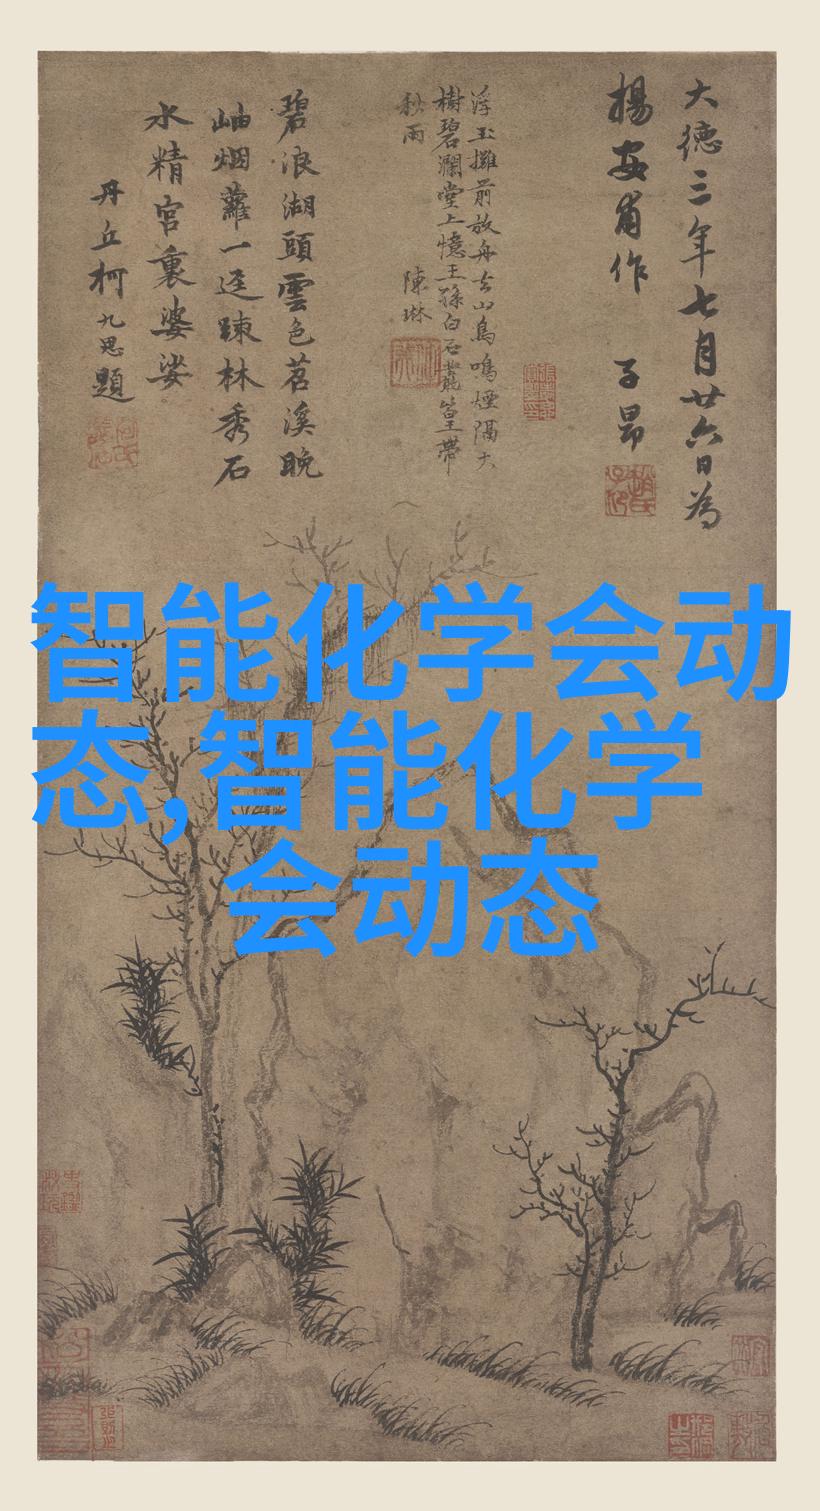 大德三年七月廿六日為
楊安甫作 子昂
浮玉攤前放舟去山鳥鳴煙隔大
樹碧瀾堂上憶王孫白石叢篁帶
秋雨 陳琳
碧浪湖頭雲色苕溪晚
岫烟蘿一逕踈林秀石
水精宮裏婆娑
丹丘柯九思題
智能化学会动
态,智能化学
会动态